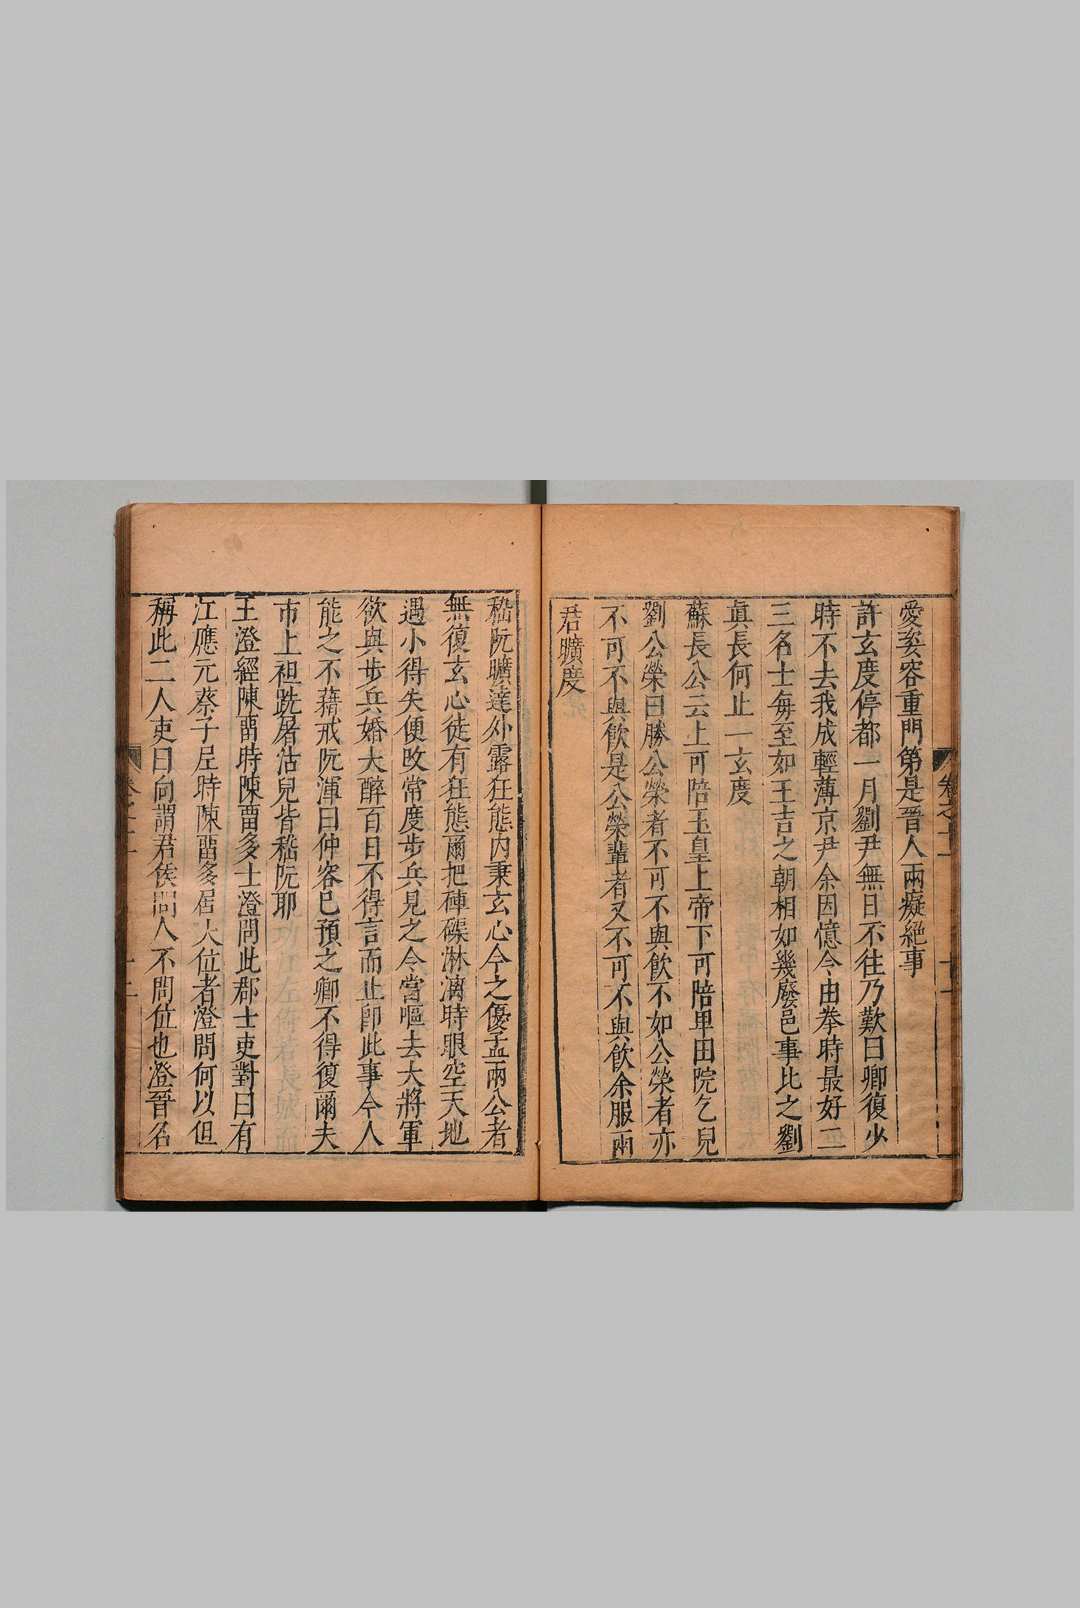 愛姿容重門第是晉人兩癡絕事
許玄度停都一月劉尹無日不往乃歎曰卿復少
時不去我成輕薄京尹余因憶今由拳時最好二
三名士每至如王吉之朝相如幾廢邑事比之劉
真長何止一玄度
蘇長公云上可陪玉皇上帝下可陪卑田院乞兒
劉公榮曰勝公榮者不可不與飲不如公榮者亦
不可不與飲是公榮輩者又不可不與飲余服兩
君曠度
嵇阮曠達外露狂態內秉玄心今之優孟兩公者
無復玄心徒有狂態爾把硨磲淋漓時眼空天地
遇小得失便改常度步兵見之今當嘔去大將軍
欲與步兵婚大醉百日不得言而止即此事今人
能之不藉戒阮渾曰仲容已預之卿不得復爾夫
市上袒跣屠沽兒皆嵇阮耶
王澄經陳畱時陳畱多士澄問此郡士吏對曰有
江應元蔡子尼時陳畱多居大位者澄問何以但
稱此二人吏曰向謂君侯問人不問位也澄晉名